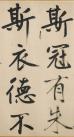 斯冠有失
斯衣德不